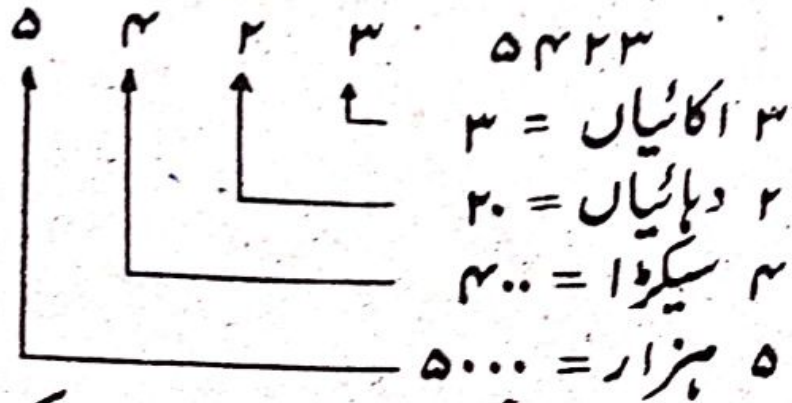 ۵ ۴ ۲ ۳
۵۴۲۳
۳ اکائیاں = ۳
۲ دہائیاں = ۲۰
۴ سیکڑا = ۴۰۰
۵ ہزار = ۵۰۰۰